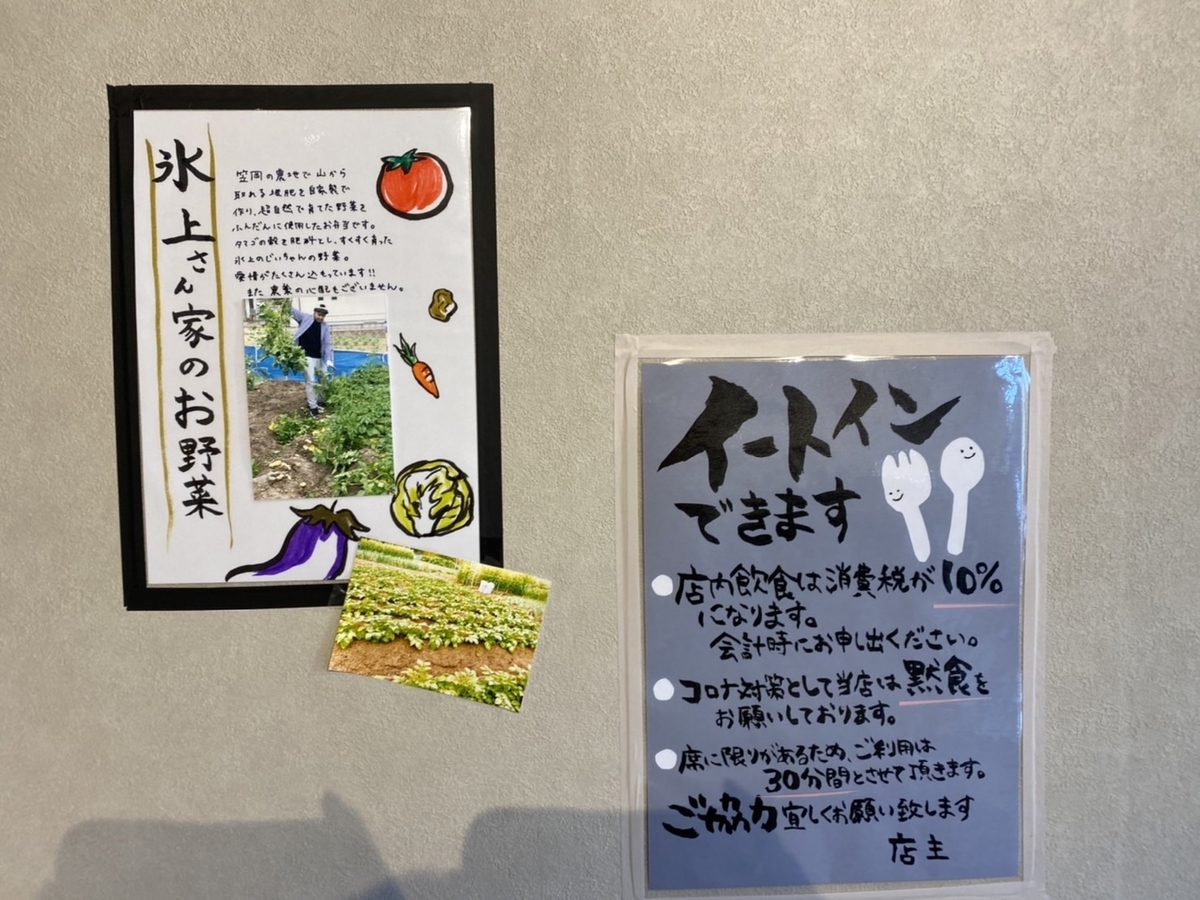 氷上さん家のお野菜
笠岡の農地で山から
取れる堆肥を自家製で
作り、超自然で育てた野菜を
ふんだんに使用したお弁当です。
タマゴの殻を肥料とし、すくすく育った
氷上のじいちゃんの野菜。
愛情がたくさん込もっています!!
また農薬の心配もございません。
イートイン
できます
店内飲食は消費税が10%
になります。
会計時にお申し出ください。
コロナ対策として当店は黙食を
お願いしております。
席に限りがあるため、ご利用は
30分間とさせて頂きます。
ご協力宜しくお願い致します
店主